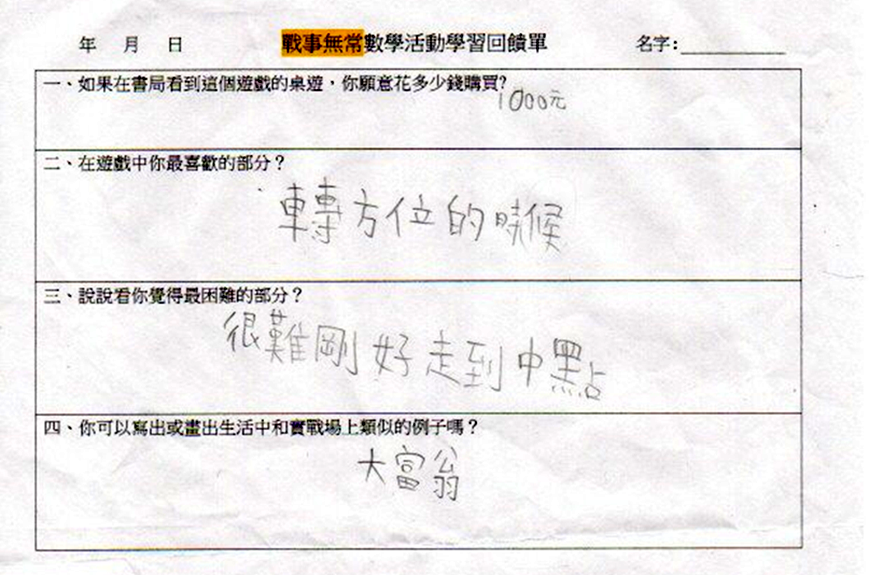 年 月 日 戰事無常數學活動學習回饋單 名字:
一、如果在書局看到這個遊戲的桌遊,你願意花多少錢購買?
1000元
二、在遊戲中你最喜歡的部分?
轉方位的時候
三、說說看你覺得最困難的部分?
很難剛好走到中點
四、你可以寫出或畫出生活中和實戰場上類似的例子嗎?
大富翁